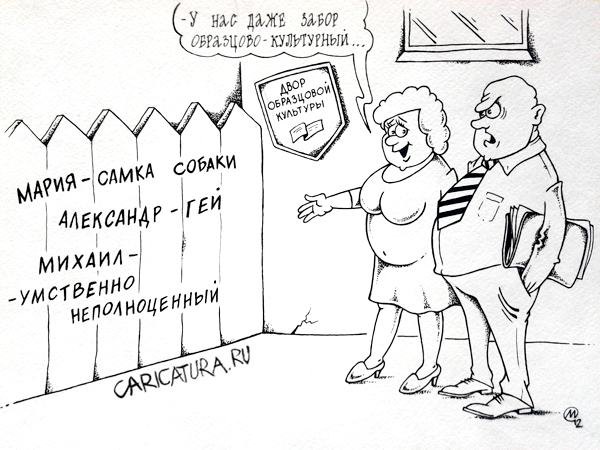 -У НАС ДАЖЕ ЗАБОР
ОБРАЗЦОВО-КУЛЬТУРНЫЙ...
ДВОР
ОБРАЗЦОВОЙ
КУЛЬТУРЫ
МАРИЯ-САМКА СОБАКИ
АЛЕКСАНДР-ГЕЙ
МИХАИЛ-
-УМСТВЕННО
НЕПОЛНОЦЕННЫЙ
CARICATURA.RU
М
12